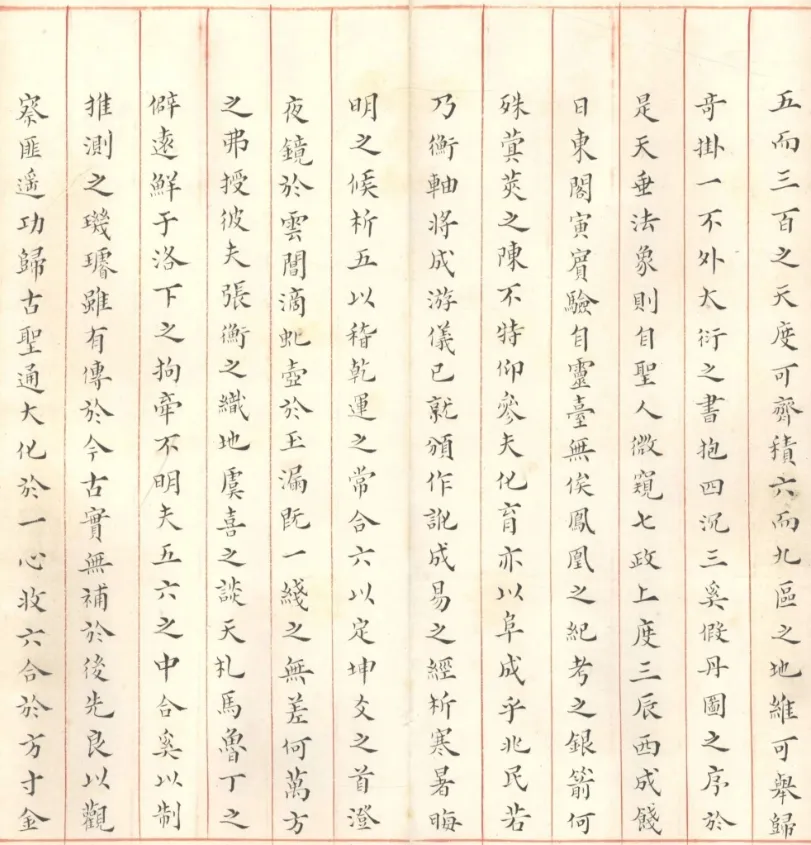 五而三百之天度可齊積六而九區之地維可舉歸
竒掛一不外大衍之書抱四沉三奚假丹圖之序於
是天垂法象則自聖人微窺七政上度三辰西成餞
日東閣寅賓驗自靈臺無俟鳳凰之紀考之銀箭何
殊蓂莢之陳不特仰參夫化育亦以阜成乎兆民若
乃衡軸將成游儀已就頒作訛成易之經析寒暑晦
明之候析五以稽乾運之常合六以定坤爻之首澄
夜鏡於雲間滴虬壺於玉漏既一綫之無差何萬方
之弗授彼夫張衡之織地虞喜之談天札馬魯丁之
僻遠鮮于洛下之拘牽不明夫五六之中合奚以制
推測之璣璿雖有傳於今古實無補於後先良以觀
察匪遥功歸古聖通大化於一心收六合於方寸金